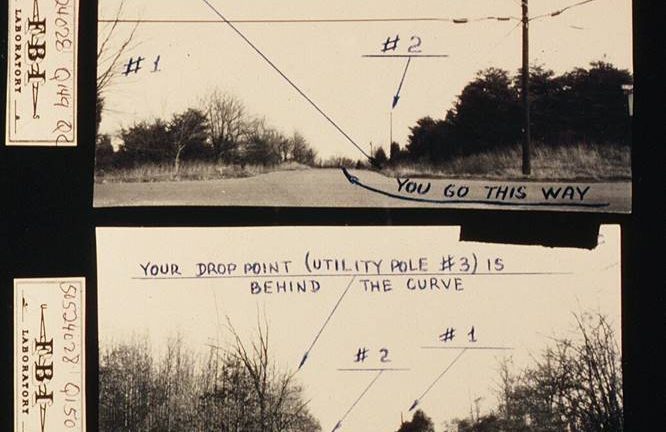 # 1
# 2
YOU GO THIS WAY
FBI
LABORATORY
YOUR DROP POINT (UTILITY POLE #3) IS
BEHIND THE CURVE
# 1
# 2
FBI
LABORATORY